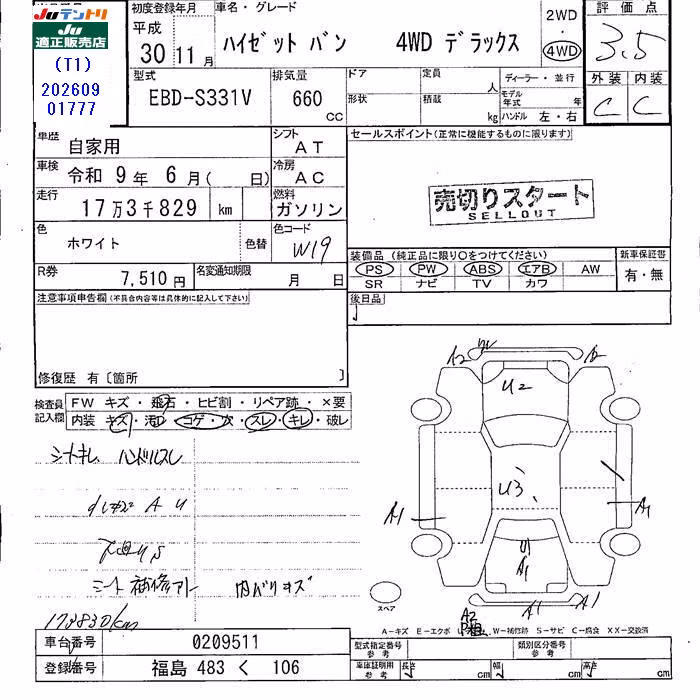 JUテントリ
JU
適正販売店
(T1)
202609
01777
初度登録年月
平成
30 11 月
車名・グレード
ハイゼット バン 4WD デラックス
2WD
・
4WD
評価点
3.5
外装 内装
C C
型式
EBD-S331V
排気量
660
CC
ドア
形状
定員
人
積載
kg
ディーラー・並行
モデル年式 年
ハンドル 左・右
車歴
自家用
シフト
AT
車検
令和 9 年 6 月( 日)
冷房
AC
走行
17万3千829 km
燃料
ガソリン
色
ホワイト
色替
色コード
W19
R券
7,510 円
名変通知期限
月 日
セールスポイント(正常に機能するものに限ります)
売切りスタート
SELLOUT
装備品 (純正品に限り○をつけてください)
PS PW ABS エアB AW
SR ナビ TV カワ
新車保証書
有・無
後日品
注意事項申告欄(不具合内容等は具体的に記入して下さい)
修復歴 有〔箇所 〕
検査員
記入欄
FW キズ・飛石・ヒビ割・リペア跡・×要
内装 キズ・汚れ・コゲ・穴・スレ・キレ・破レ
シートキレ ハンドルスレ
A U
下廻りS
シート補修アリ 内バリキズ
173830km
A2
A2
U2
U3
A1
A1
U1
A1
A2
A1
A1
スペア
A-キズ E-エクボ W-補修跡 S-サビ C-腐食 XX-交換済
車台番号
0209511
登録番号
福島 483 く 106
型式指定番号
参考
類別区分番号
参考
車庫証明用
参考
長さ cm 幅 cm 高さ cm